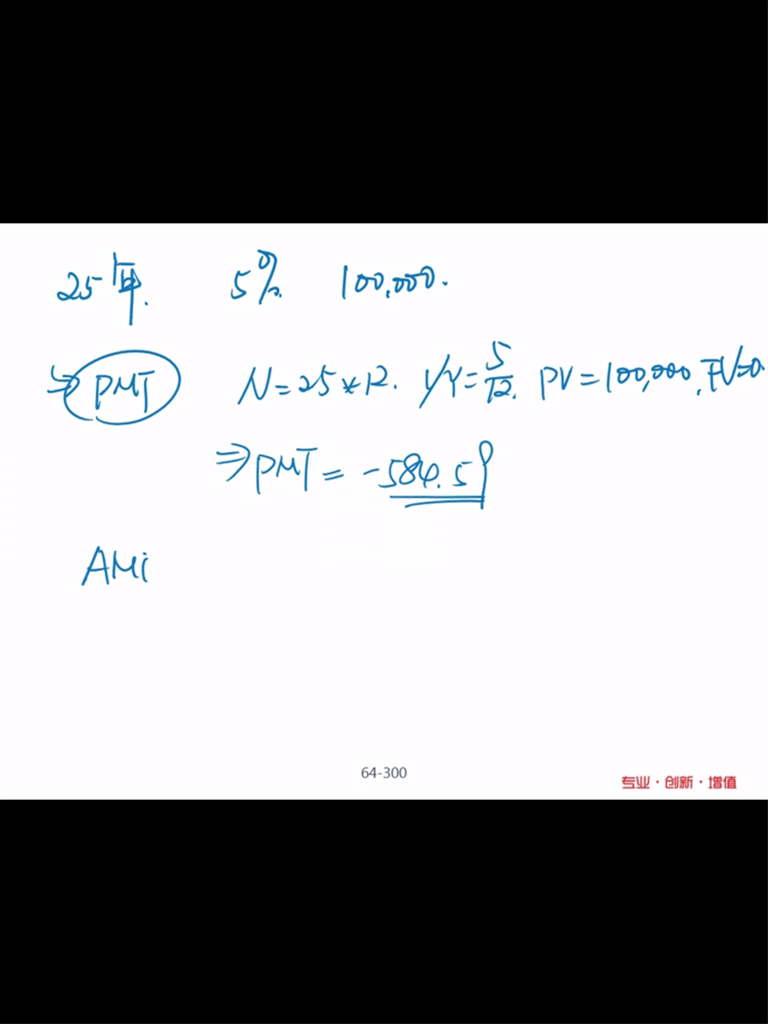 25年. 5% 100,000.
↳ PMT N=25*12. I/Y=5/12. PV=100,000, FV=0.
⇒PMT = -584.59
AMi
64-300
专业·创新·增值